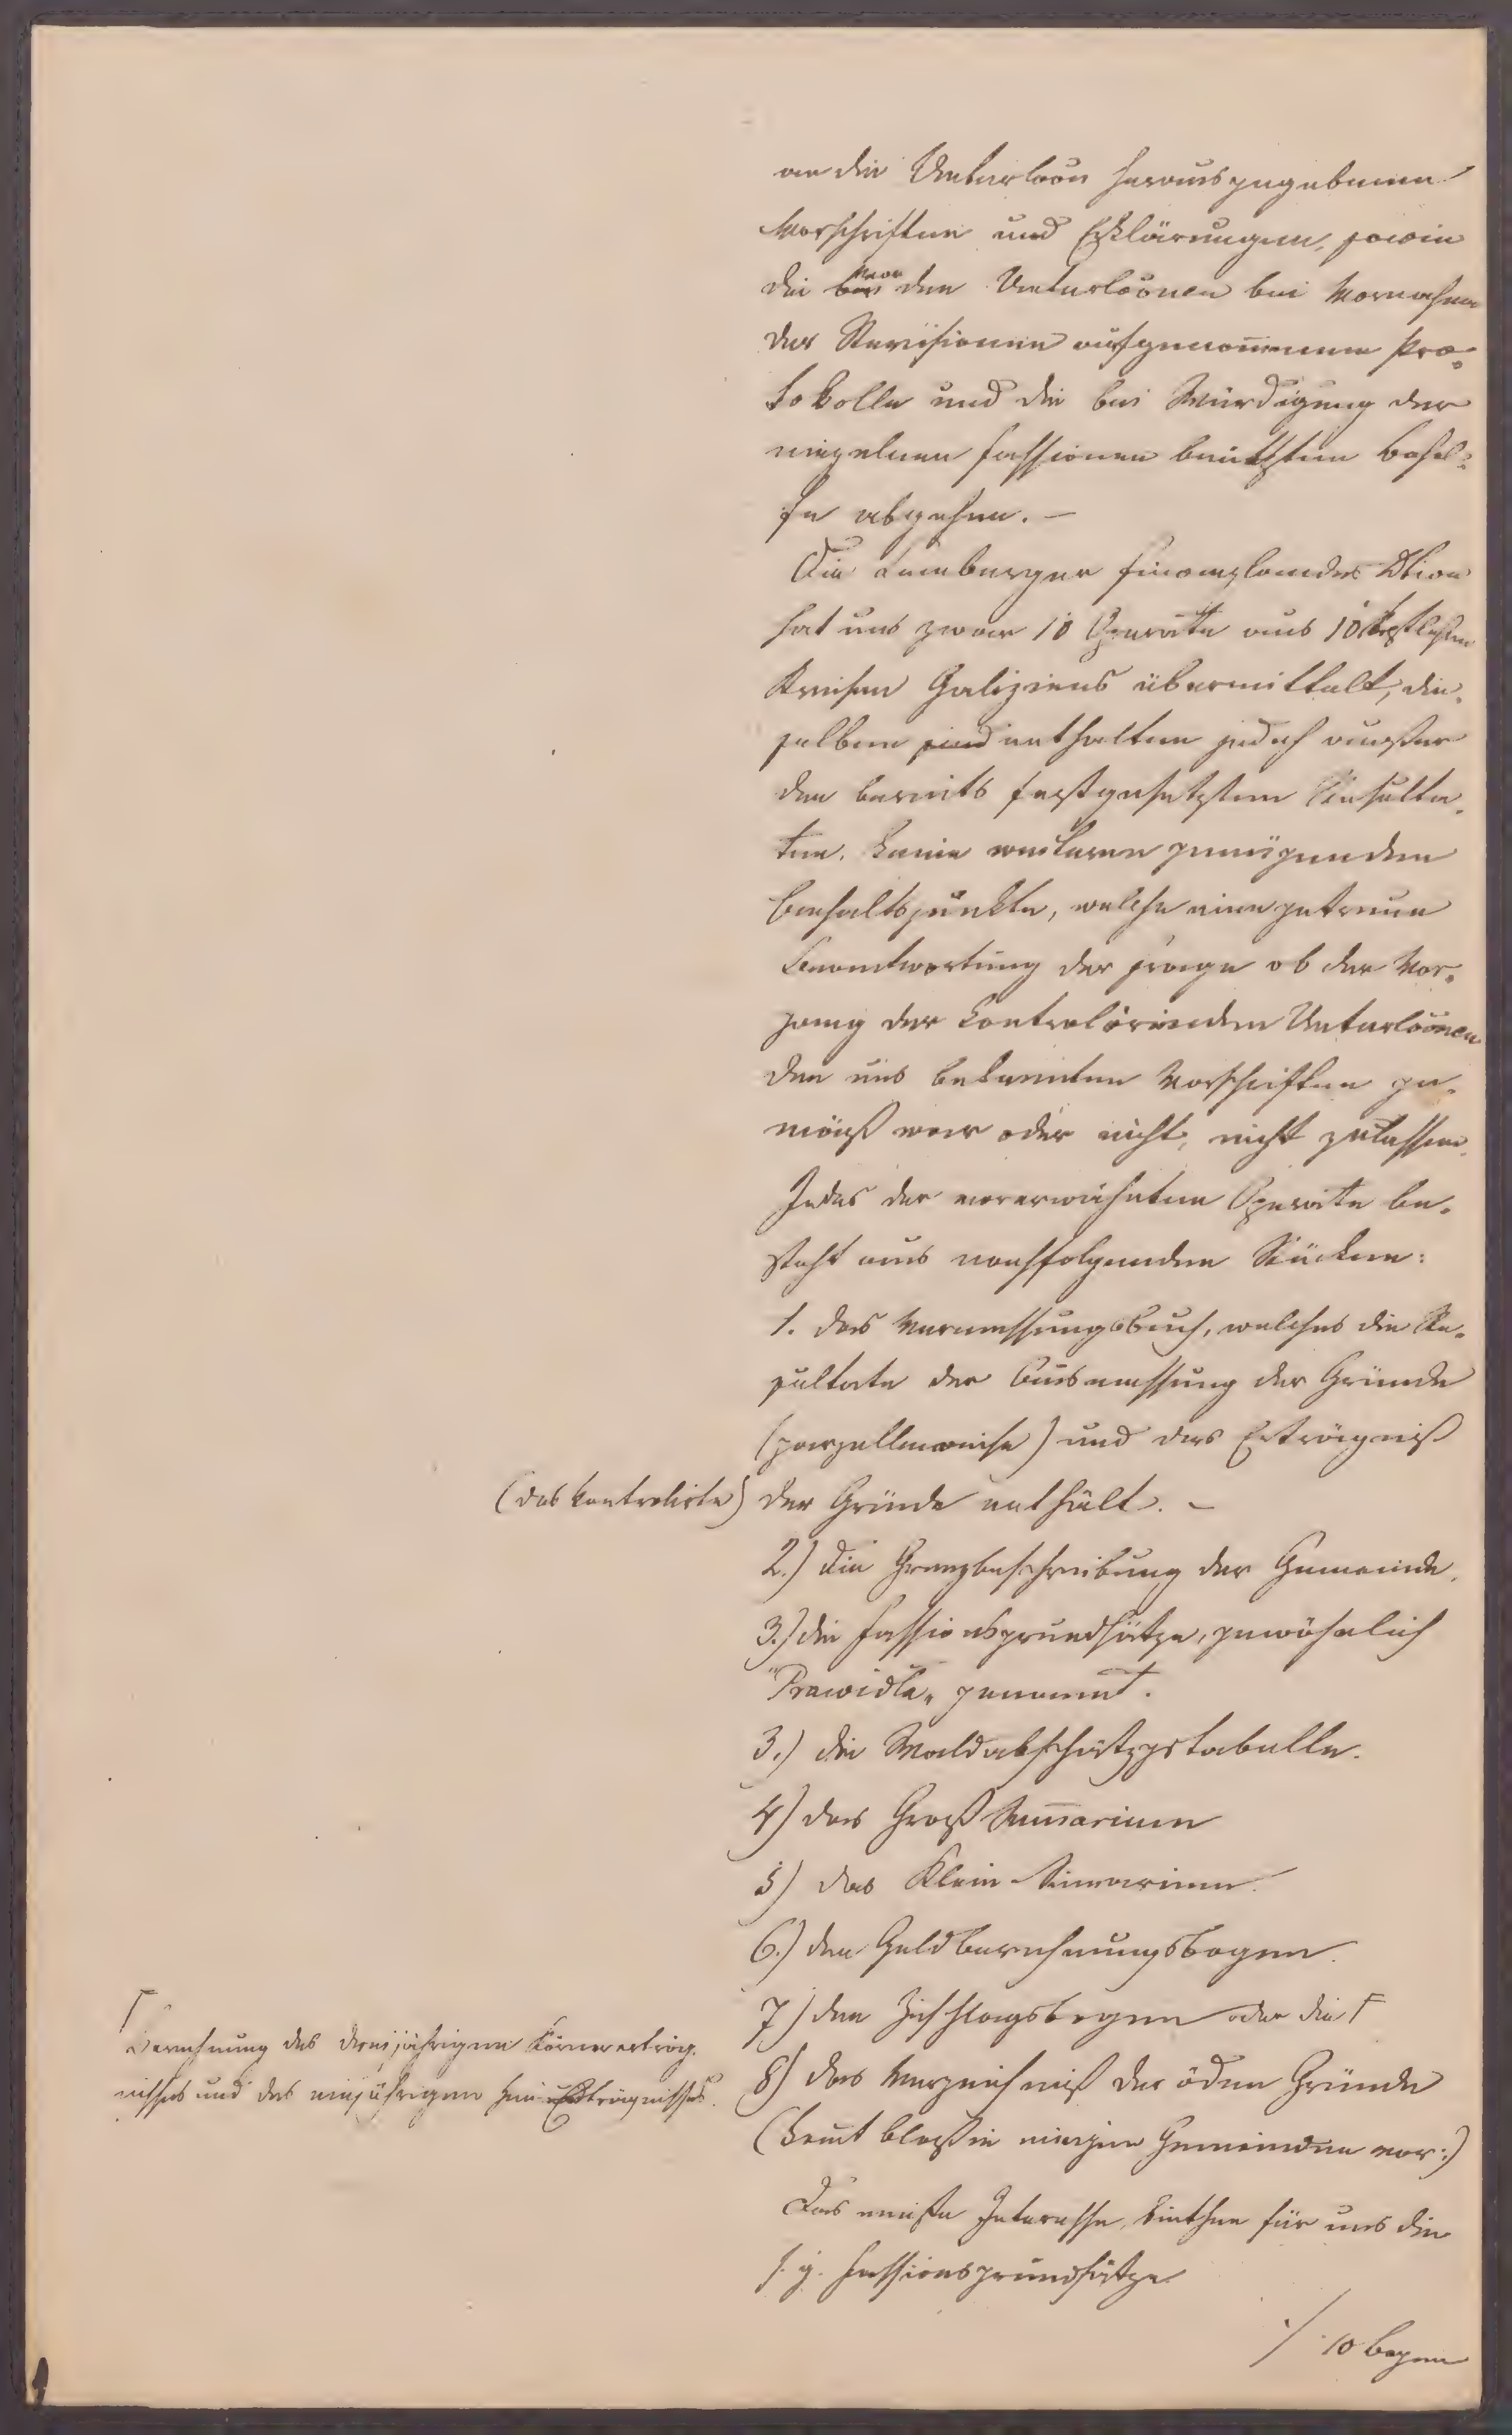 an die Unterlöon herausgegebenen
Vorschriften und Erklärungen, sowie
die bei von den Unterlöonen bei Vornahme
der Revisionen aufgenom̅enen Pro-
tokolle und die bei Würdigung der
einzelnen Fassionen benützten Behel-
fe abgehen. –
Die Lemberger Finanzlandes Dtion
hat uns zwar 10 Operate aus 10
Kreisen Galiziens übermittelt, die-
selben sind enthalten jedoch außer
den bereits festgesetzten Resulta-
ten, keine weiteren genügenden
Anhaltspunkte, welche eine getreue
Beantwortung der Frage ob der Vor-
gang der kontrolirenden Unterlöonen
den uns bekannten Vorschriften ge-
mäß war oder nicht, nicht zulassen.
Jedes der vorerwähnten Operate be-
steht aus nachfolgenden Stücken:
1. das Vermessungsbuch, welches die Re-
sultate der Ausmessung der Gründe
(parzellenweise) und das Erträgniß
(das kontrolirte) der Gründe enthält. –
2.) die Grenzbeschreibung der Gemeinde.
3.) die Fassionsgrundsätze, gewöhnlich
"Prawidla" genannt.
3.) die Waldabschätzgstabelle.
4) das Groß Sum̅arium
5) das Klein-Sumarium.
6.) den Geldberechnungsbogen.
7) den Zuschlagsbogen oder die Γ
Γ
Berechnung des dreijährigen Körnererträg-
nisses und des einjährigen Heu Erträgnisses.
8) das Verzeichniß der öden Gründe
(kom̅t bloß in einigen Gemeinden vor:)
Das meiste Interesse biethen für uns die
s. g. Fassionsgrundsätze
./. 10 bogen